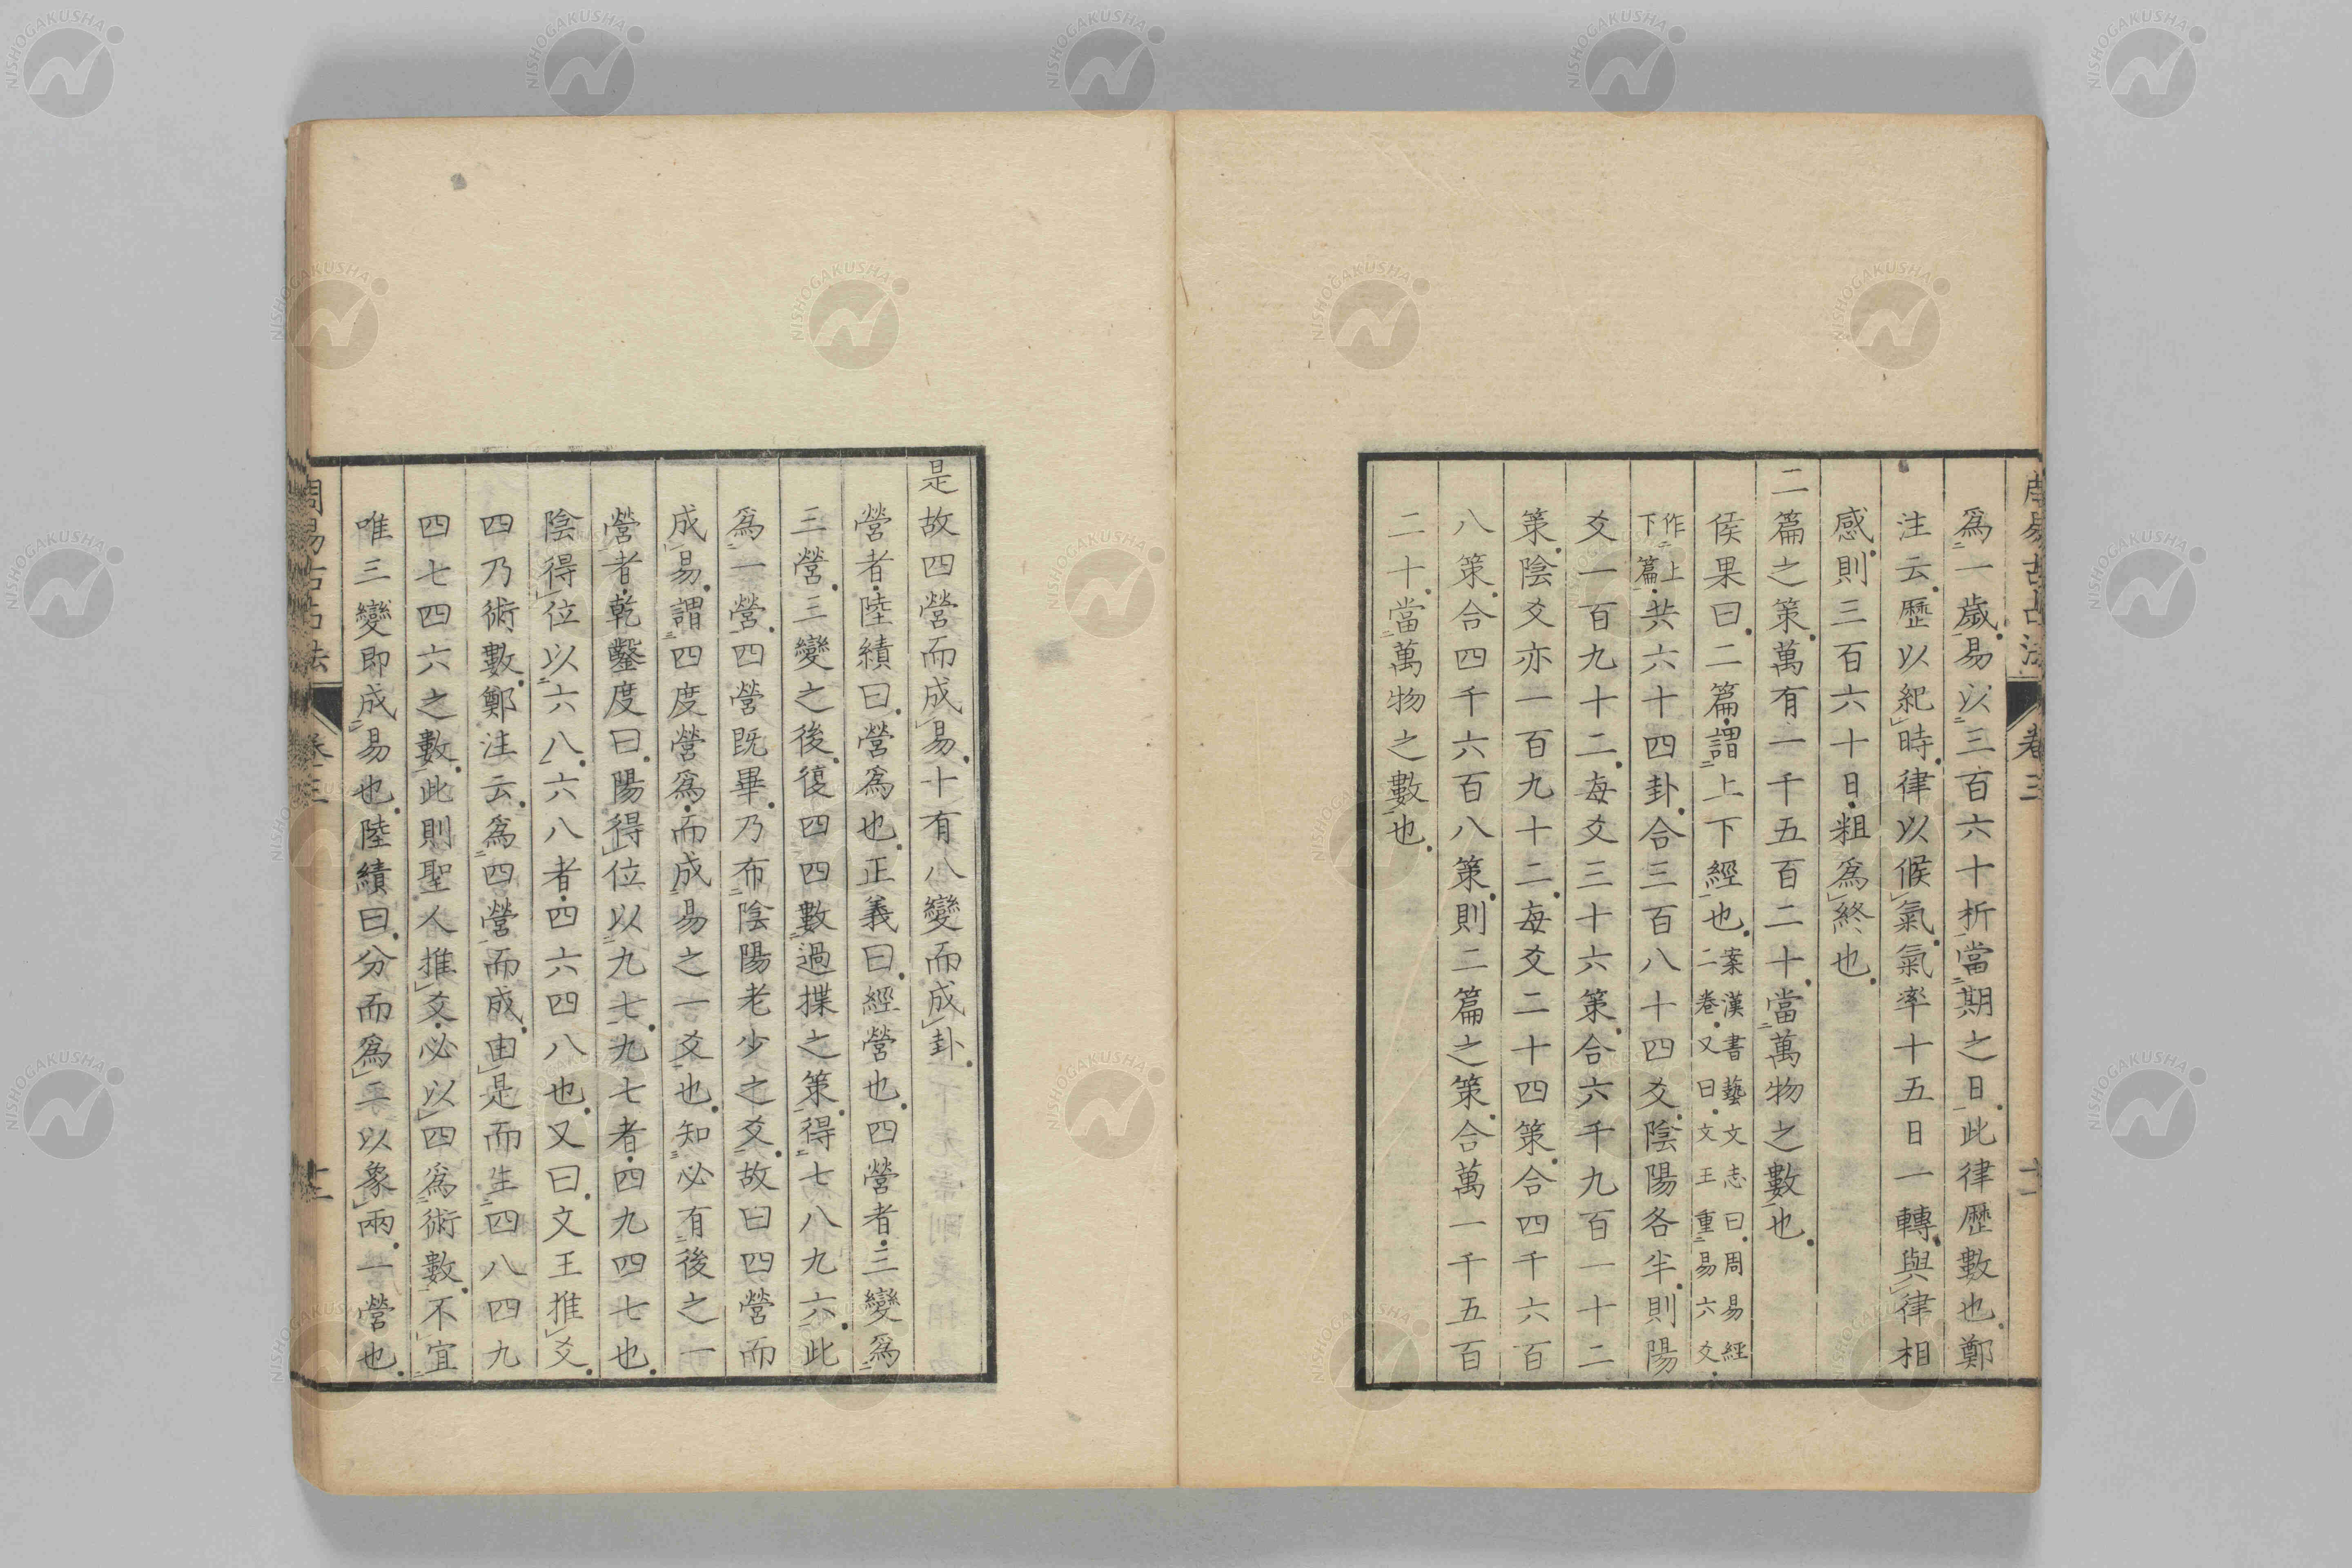 周易古占法
卷三
十一
爲一歲易以三百六十析當期之日此律歷數也鄭
注云歷以紀時律以候氣氣率十五日一轉與律相
感則三百六十日粗爲終也
二篇之策萬有一千五百二十當萬物之數也
侯果曰二篇謂上下經也案漢書藝文志曰周易經
二卷又曰文王重易六爻
作上
下篇共六十四卦合三百八十四爻陰陽各半則陽
爻一百九十二每爻三十六策合六千九百一十二
策陰爻亦一百九十二每爻二十四策合四千六百
八策合四千六百八策則二篇之策合萬一千五百
二十當萬物之數也
是故四營而成易十有八變而成卦
營者陸績曰營爲也正義曰經營也四營者三變爲
三營三變之後復四四數過揲之策得七八九六此
爲一營四營既畢乃布陰陽老少之爻故曰四營而
成易謂四度營爲而成易之一爻也知必有後之一
營者乾鑿度曰陽得位以九七九七者四九四七也
陰得位以六八六八者四六四八也又曰文王推爻
四乃術數鄭注云爲四營而成由是而生四八四九
四七四六之數此則聖人推爻必以四爲術數不宜
唯三變即成易也陸績曰分而爲二以象兩一營也
周易古占法
卷三
十二
NISHOGAKUSHA